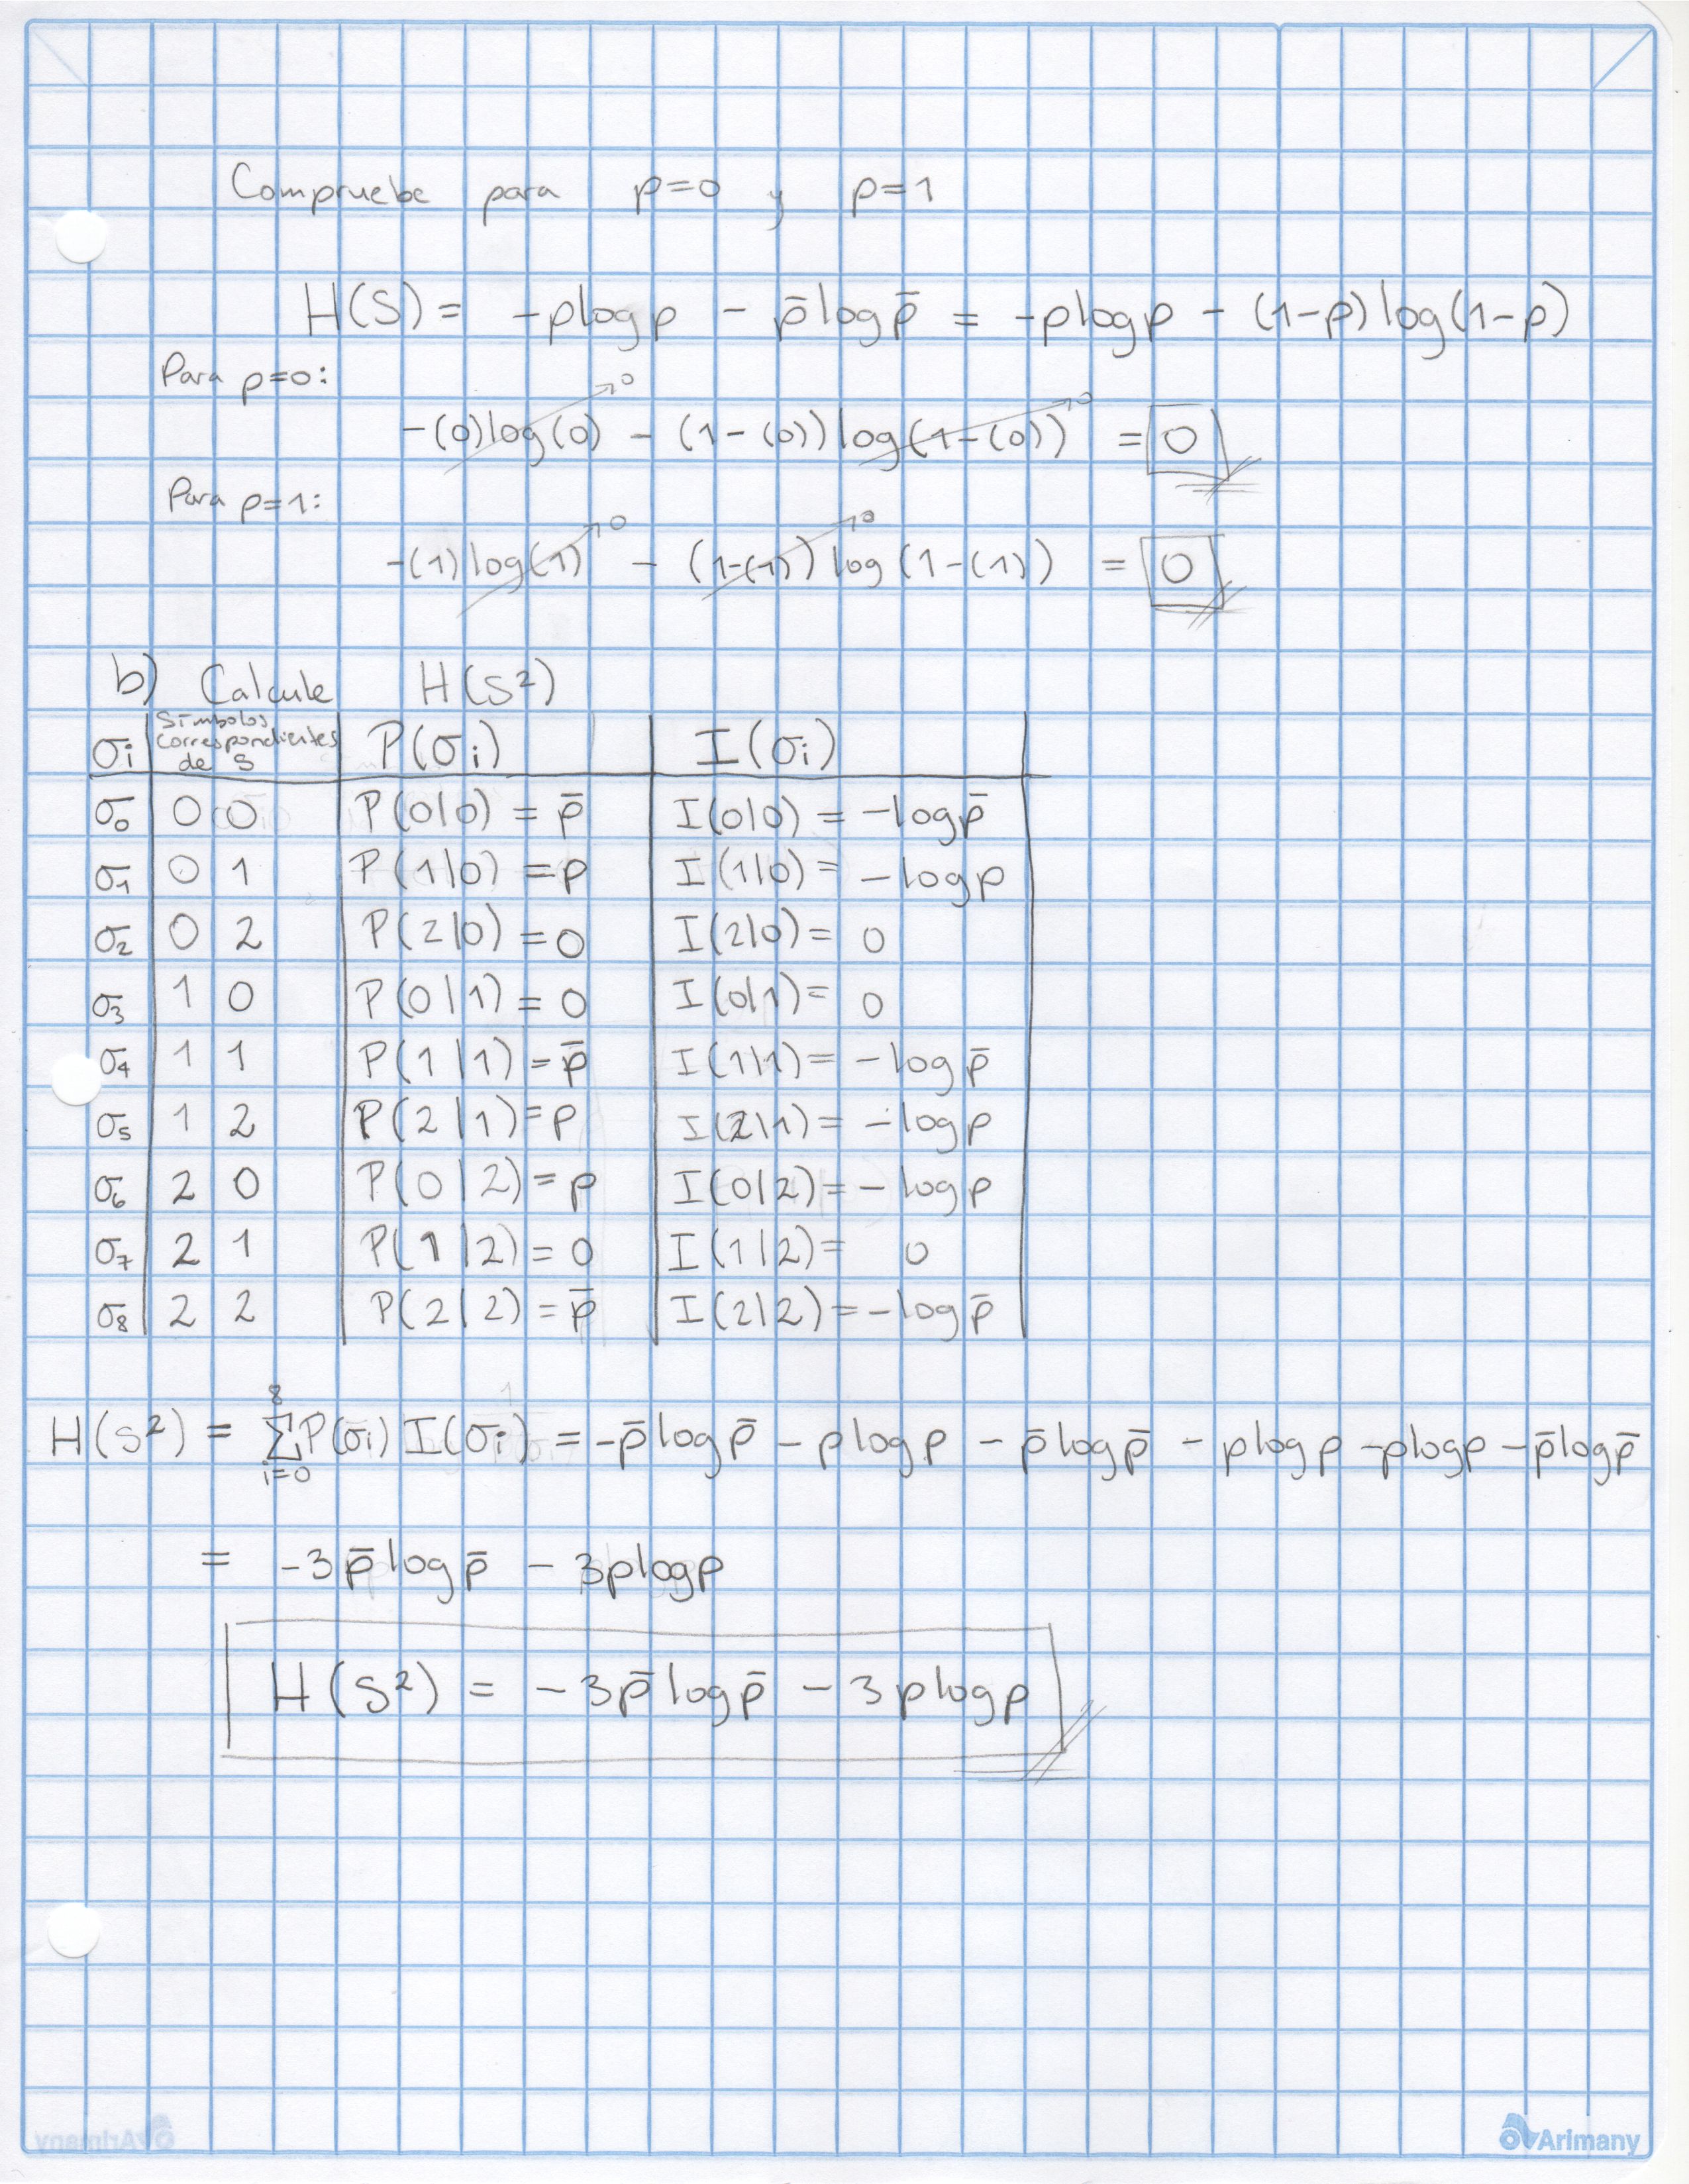 Compruebe para p=0 y p=1
H(S) = -plogp - p̄logp̄ = -plogp - (1-p)log(1-p)
Para p=0:
-(0)log(0) →0 - (1-(0))log(1-(0)) →0 = 0
Para p=1:
-(1)log(1) →0 - (1-(1)) →0 log(1-(1)) = 0
b) Calcule H(S²)
σi | Símbolos correspondientes de S | P(σi) | I(σi)
σ0 | 0 0 | P(0|0) = p̄ | I(0|0) = -logp̄
σ1 | 0 1 | P(1|0) = p | I(1|0) = -logp
σ2 | 0 2 | P(2|0) = 0 | I(2|0) = 0
σ3 | 1 0 | P(0|1) = 0 | I(0|1) = 0
σ4 | 1 1 | P(1|1) = p̄ | I(1|1) = -logp̄
σ5 | 1 2 | P(2|1) = p | I(2|1) = -logp
σ6 | 2 0 | P(0|2) = p | I(0|2) = -logp
σ7 | 2 1 | P(1|2) = 0 | I(1|2) = 0
σ8 | 2 2 | P(2|2) = p̄ | I(2|2) = -logp̄
H(S²) = Σ_{i=0}^{8} P(σi) I(σi) = -p̄logp̄ - plogp - p̄logp̄ - plogp - plogp - p̄logp̄
= -3p̄logp̄ - 3plogp
H(S²) = -3p̄logp̄ - 3plogp
Arimany